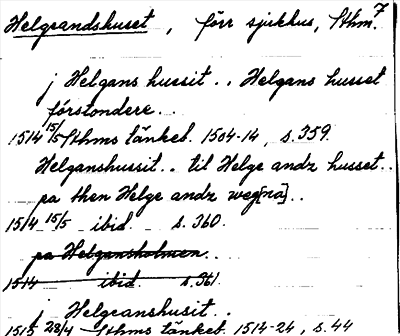 Helgeandshuset, förr sjukhus, Sthm. 7
j Helgans hussit.. Helgans husset
förstondere..
1514 15/5 Sthms tänkeb. 1504-14, s. 359.
Helganshussit.. til Helge andz husset..
pa then Helge andz weg[na]..
1514 15/5 ibid. s. 360.
pa Helgansholmen..
1514 ibid. s. 361.
j Helgeanshusit..
1515 23/4 Sthms tänkeb. 1514-24, s. 44